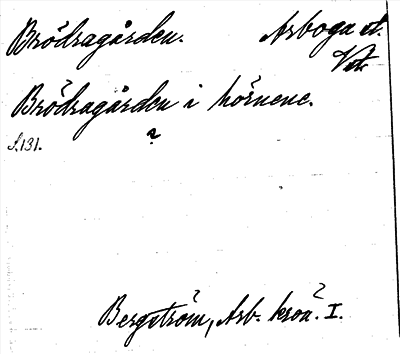 Brödragården. Arboga st.
Vstm.
Brödragården i hörnene.
S. 131.
?
Bergström, Arb. krön. I.